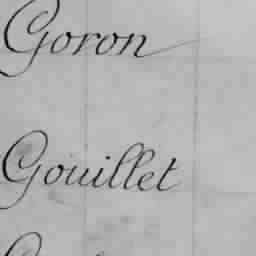 Goron
Gouillet